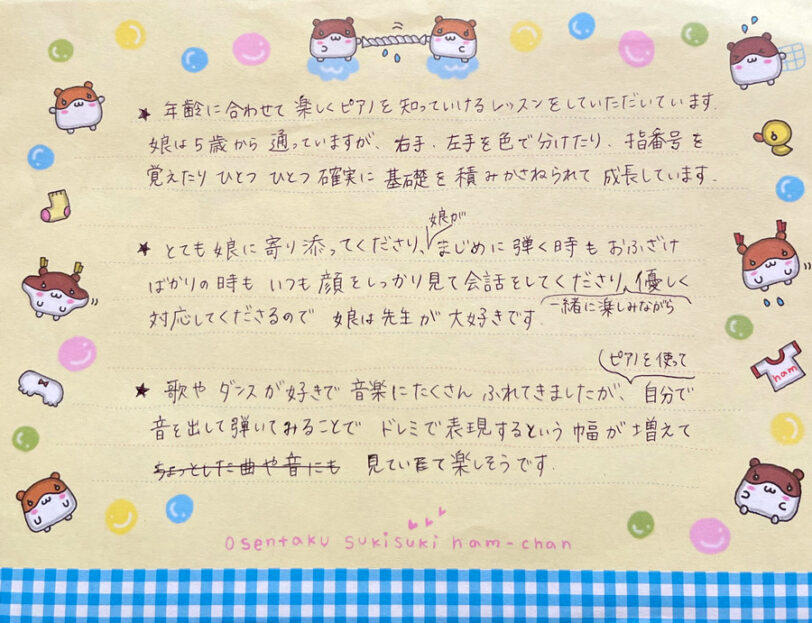 ★ 年齢に合わせて楽しくピアノを知っていけるレッスンをしていただいています.
娘は5歳から通っていますが、右手.左手を色で分けたり、指番号を
覚えたりひとつひとつ確実に基礎を積みかさねられて成長しています.
娘が
★ とても娘に寄り添ってくださり、まじめに弾く時もおふざけ
ばかりの時もいつも顔をしっかり見て会話をしてくださり、優しく
一緒に楽しみながら
対応してくださるので娘は先生が大好きです.
ピアノを使って
★ 歌やダンスが好きで音楽にたくさんふれてきましたが、自分で
音を出して弾いてみることでドレミで表現するという幅が増えて
ちょっとした曲や音にも 見ていて楽しそうです.
osentaku sukisuki ham-chan
ham